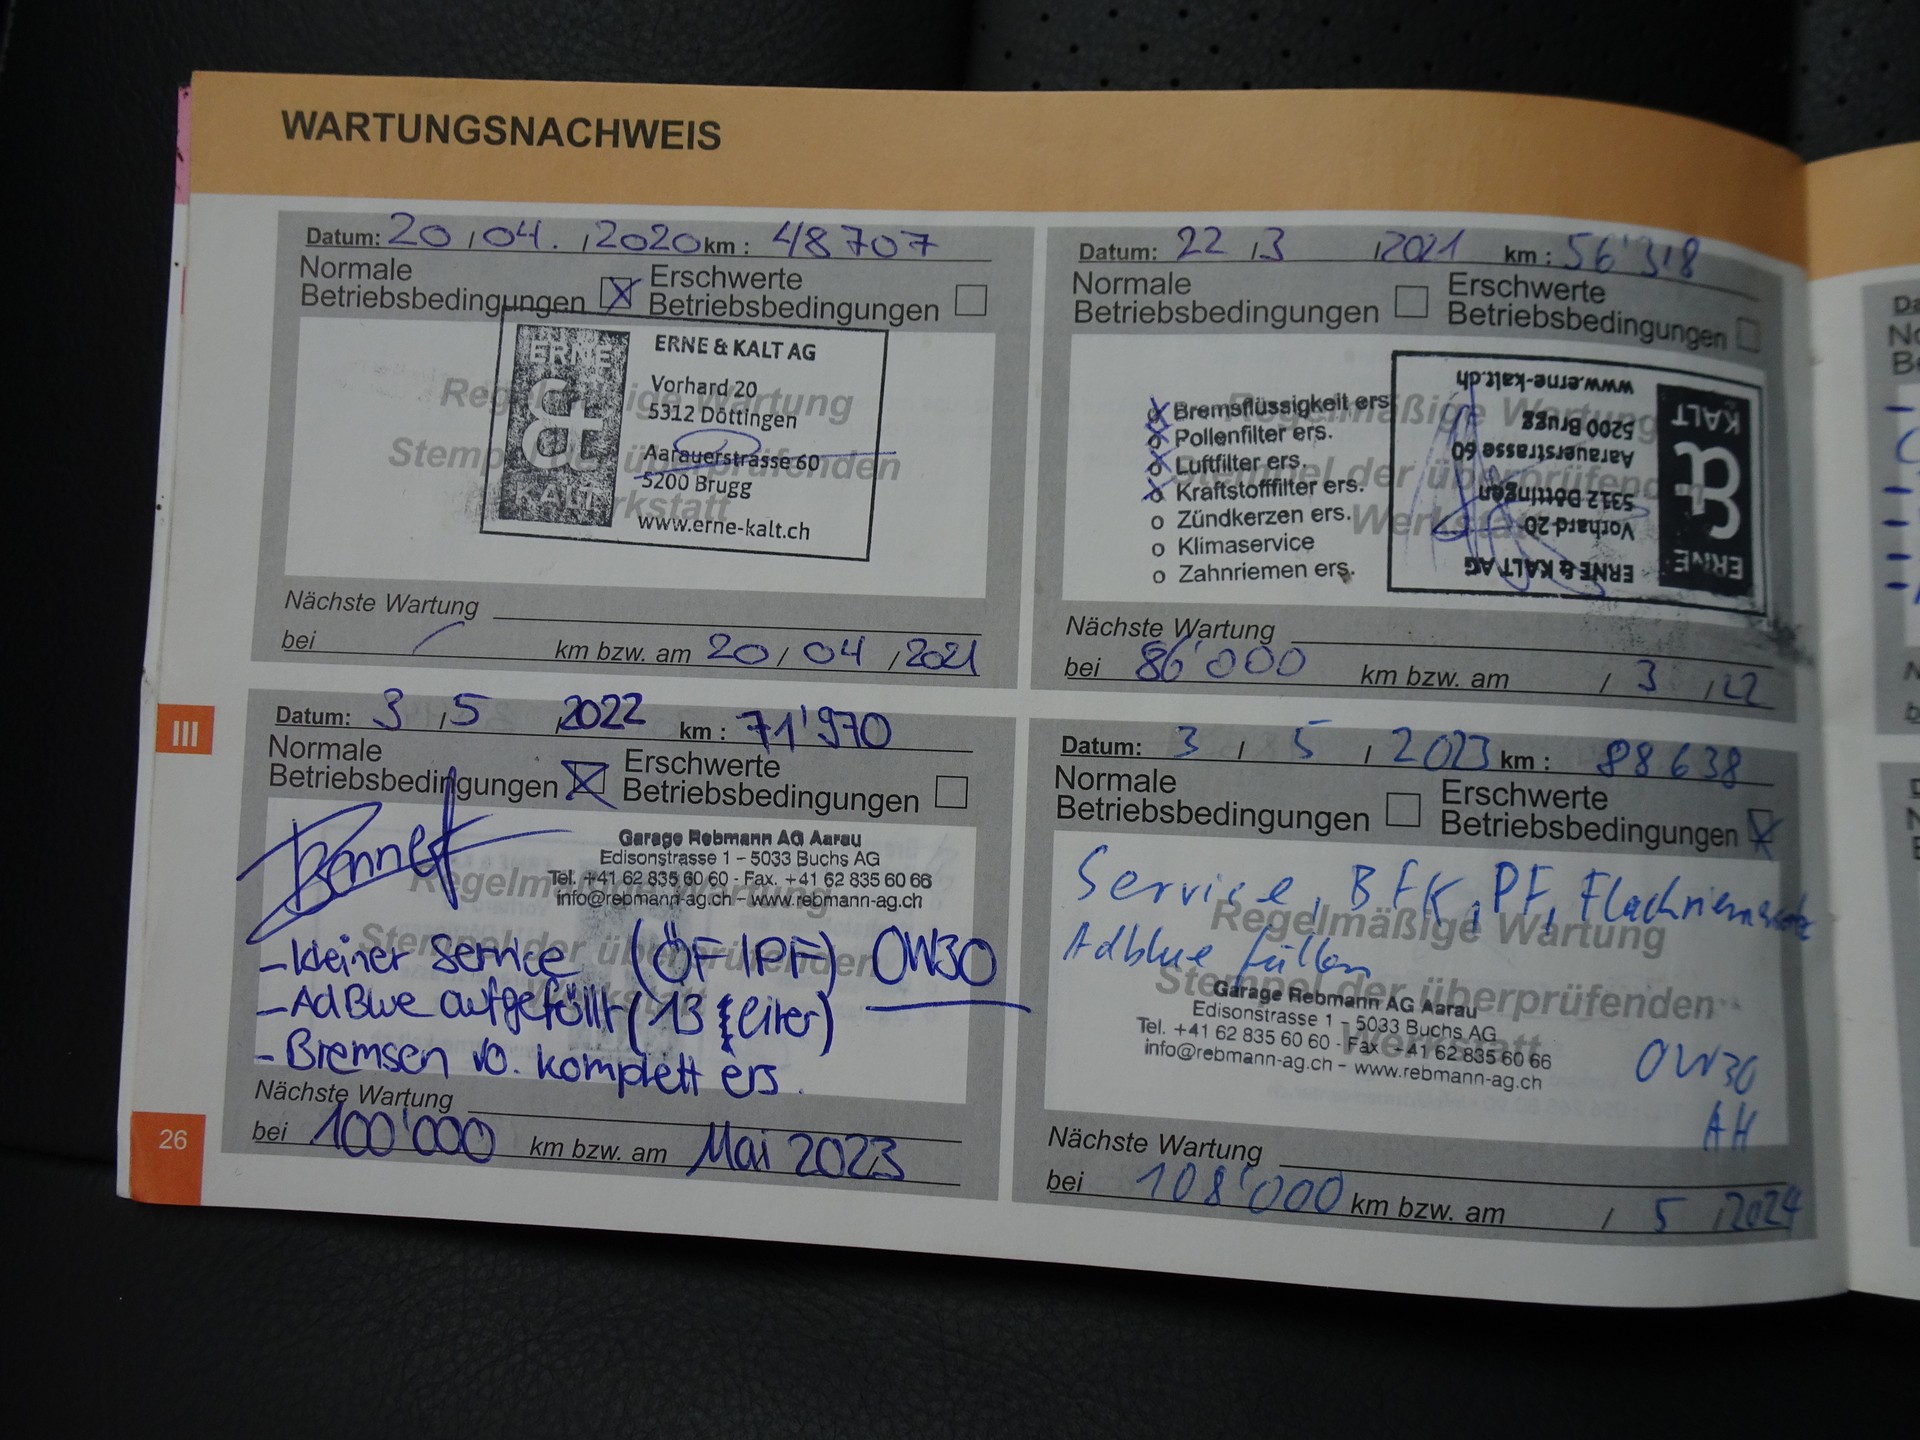 WARTUNGSNACHWEIS
Datum: 20 / 04. / 2020 km : 48707
Normale Betriebsbedingungen Erschwerte Betriebsbedingungen
Regelmäßige Wartung
Stempel der überprüfenden
Werkstatt
ERNE & KALT
ERNE & KALT AG
Vorhard 20
5312 Döttingen
Aarauerstrasse 60
5200 Brugg
www.erne-kalt.ch
Nächste Wartung
bei / km bzw. am 20 / 04 / 2021
Datum: 22 / 3 / 2021 km : 56'318
Normale Betriebsbedingungen Erschwerte Betriebsbedingungen
Regelmäßige Wartung
Stempel der überprüfenden
Werkstatt
o Bremsflüssigkeit ers.
o Pollenfilter ers.
o Luftfilter ers.
o Kraftstofffilter ers.
o Zündkerzen ers.
o Klimaservice
o Zahnriemen ers.
ERNE & KALT
ERNE & KALT AG
Vorhard 20
5312 Döttingen
Aarauerstrasse 60
5200 Brugg
www.erne-kalt.ch
Nächste Wartung
bei 86'000 km bzw. am / 3 / 22
III
Datum: 3 / 5 / 2022 km : 71'970
Normale Betriebsbedingungen Erschwerte Betriebsbedingungen
Regelmäßige Wartung
Stempel der überprüfenden
Garage Rebmann AG Aarau
Edisonstrasse 1 – 5033 Buchs AG
Tel. +41 62 835 60 60 - Fax. +41 62 835 60 66
info@rebmann-ag.ch – www.rebmann-ag.ch
- kleiner Service (ÖF/PF) 0W30
- AdBlue aufgefüllt (13 liter)
- Bremsen vo. komplett ers.
Nächste Wartung
bei 100'000 km bzw. am Mai 2023
Datum: 3 / 5 / 2023 km : 88638
Normale Betriebsbedingungen Erschwerte Betriebsbedingungen
Regelmäßige Wartung
Stempel der überprüfenden
Werkstatt
Service, BFK, PF,
Adblue füllen
Garage Rebmann AG Aarau
Edisonstrasse 1 – 5033 Buchs AG
Tel. +41 62 835 60 60 - Fax +41 62 835 60 66
info@rebmann-ag.ch – www.rebmann-ag.ch
0W30
AH
Nächste Wartung
bei 108'000 km bzw. am / 5 / 2024
26